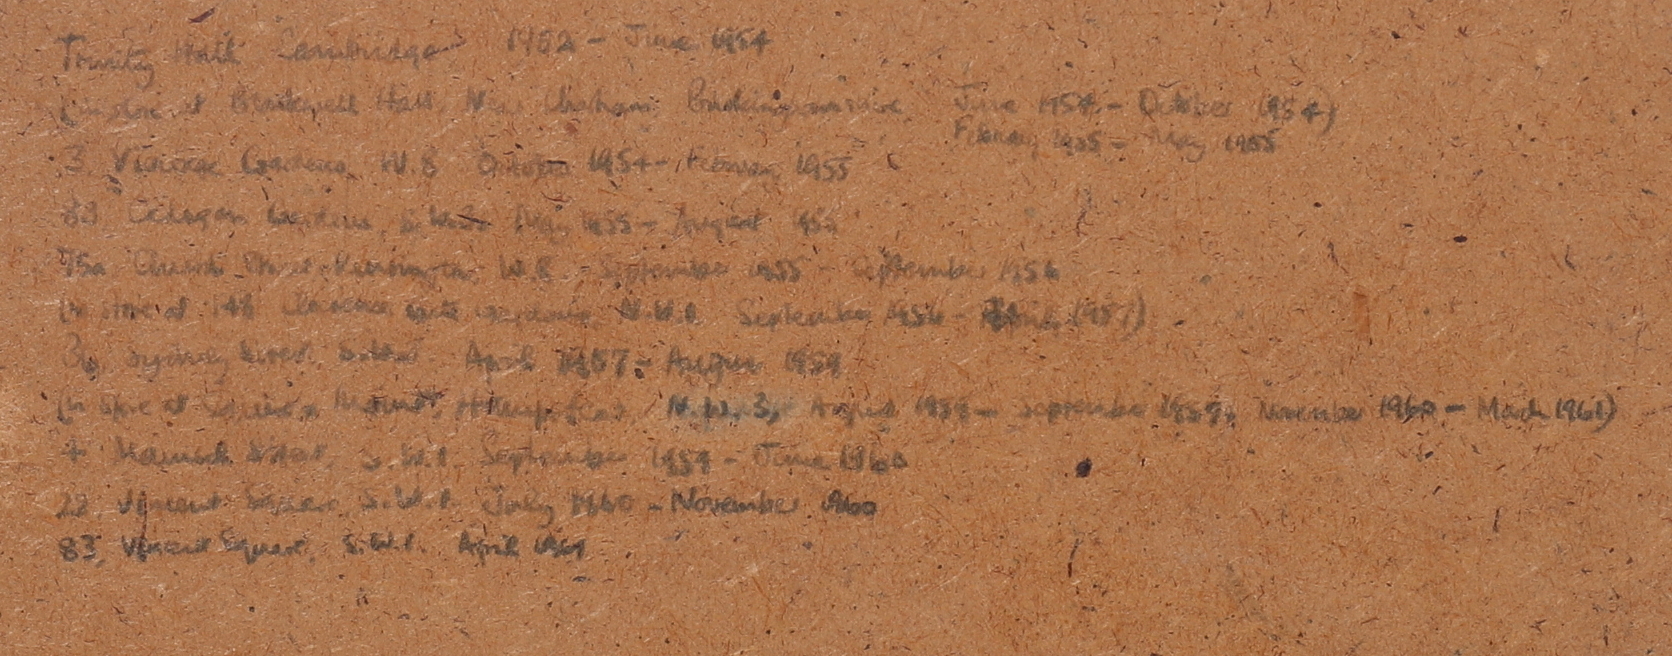 Trinity Hall Cambridge 1952 - June 1954
(in store at Hall, Near Chesham Buckinghamshire June 1954 - October 1954)
February 1955 - May 1955
3, Vicarage Gardens, W.8 October 1954 - February 1955
83 Cadogan Gardens, S.W.3 May 1955 - August 1955
75a Church Street Kensington, W.8 - September 1955 - September 1956
(in store at 148 Clarence Gate Gardens, N.W.1 September 1956 - April 1957)
Sydney Street, S.W.3 April 1957 - August 1959
(in store at Mount, Hampstead, N.W.3, August 1959 - September 1959, November 1960 - March 1961)
4 Street, S.W.1. September 1959 - June 1960
22, Vincent Square, S.W.1. July 1960 - November 1960
83, Vincent Square, S.W.1. April 1961